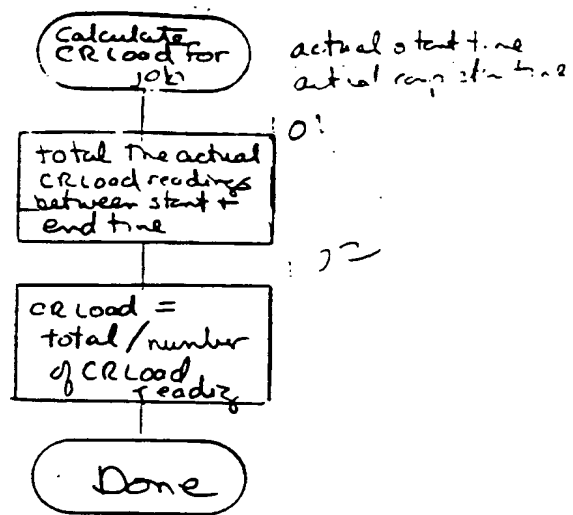 Calculate
CRLoad for
job
actual start time
actual completion time
total the actual
CRLoad readings
between start +
end time
CRLoad =
total / number
of CRLoad
reading
Done